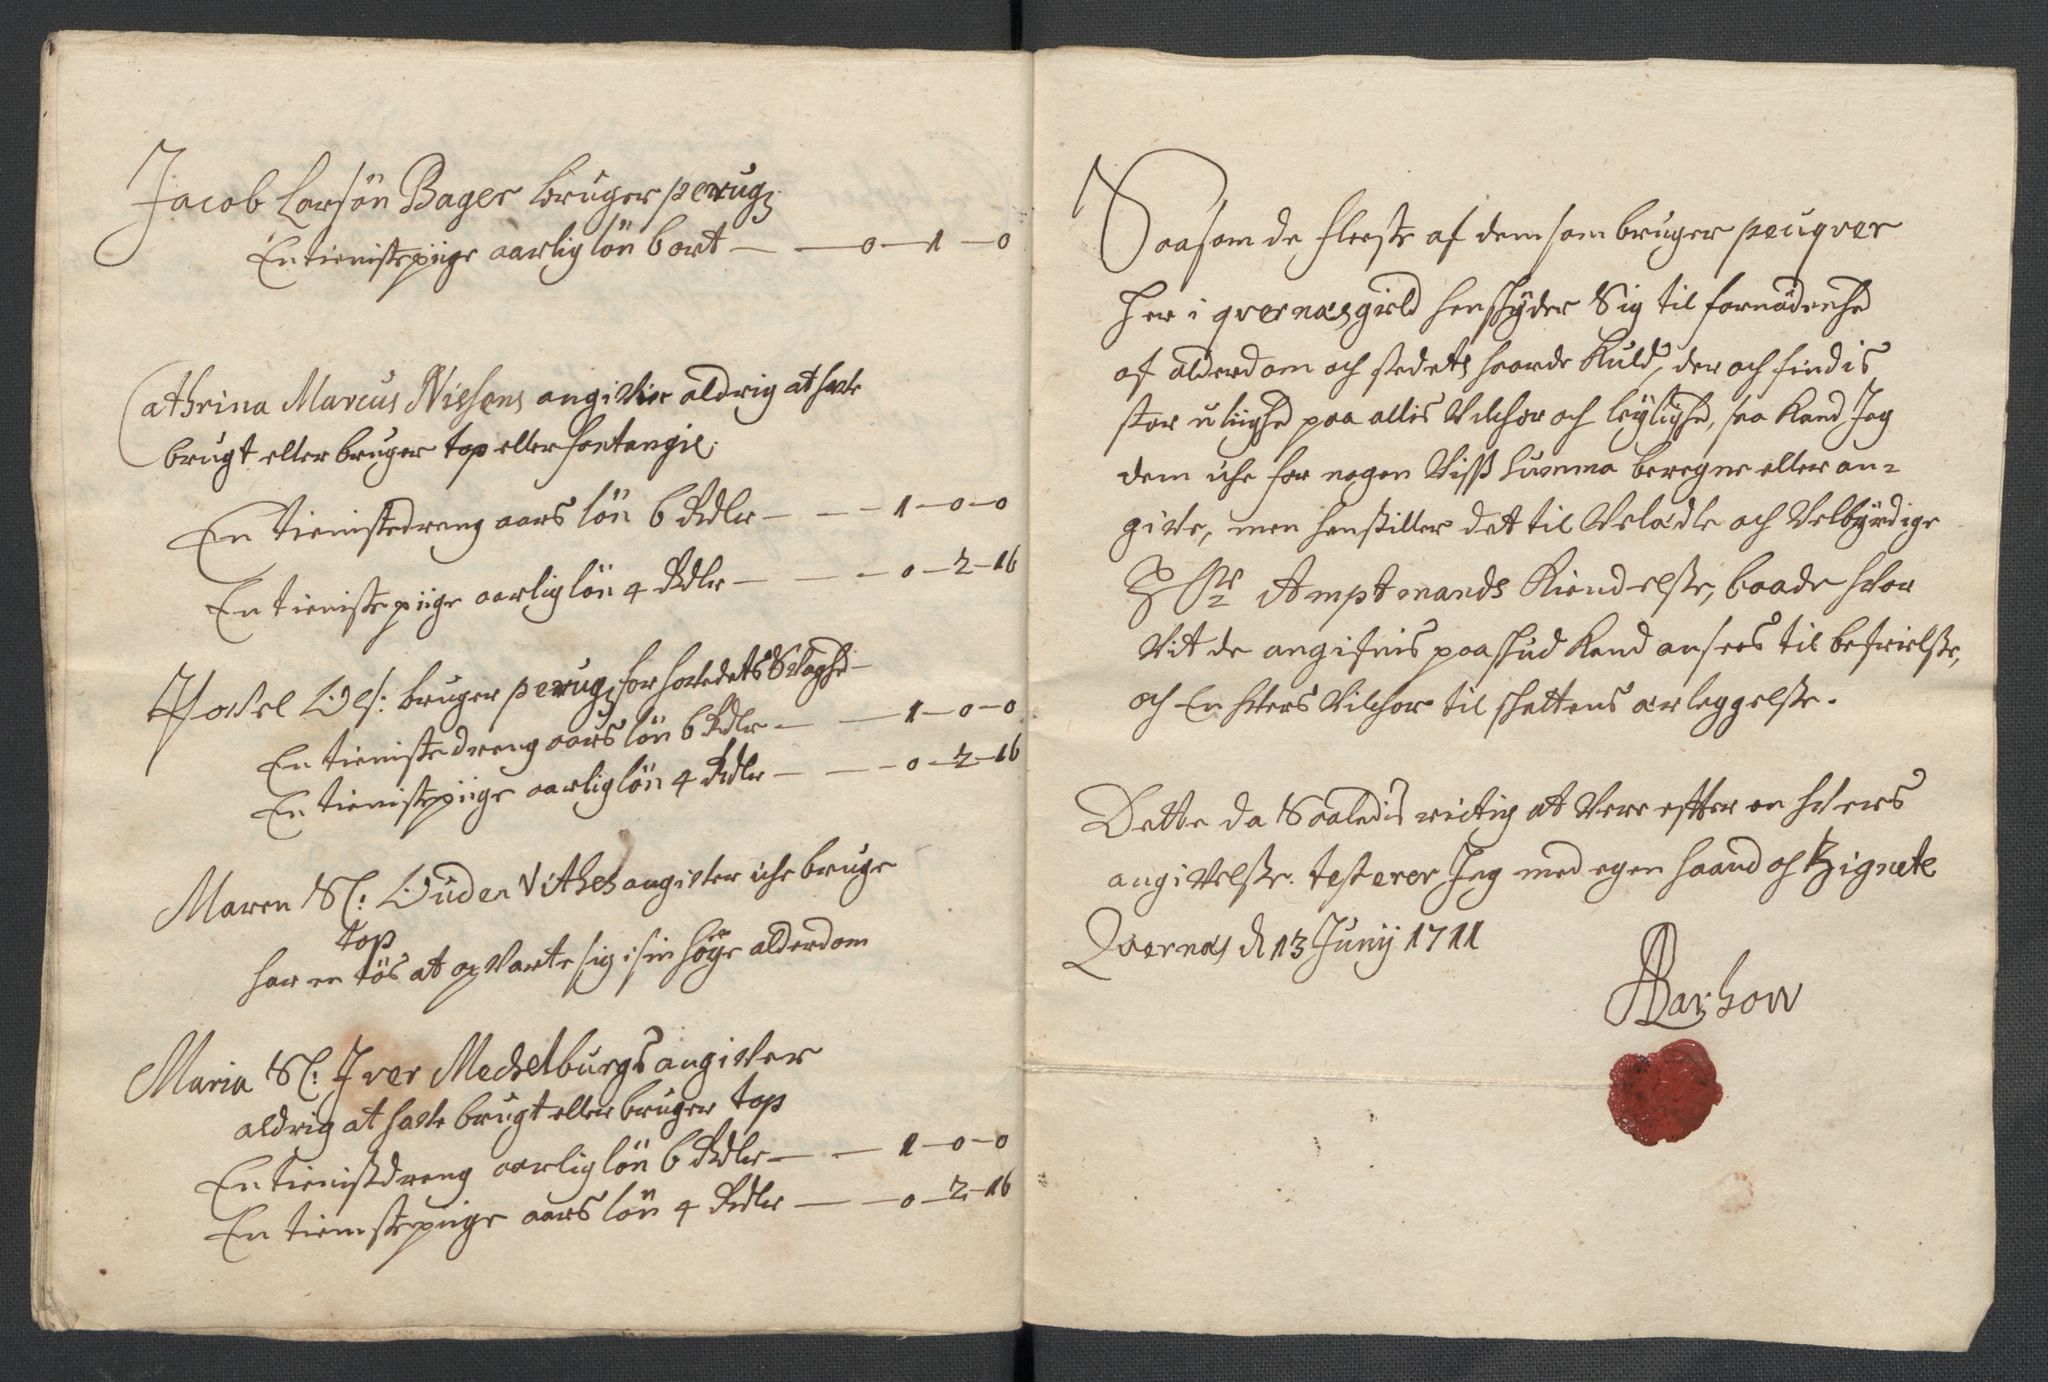 Jacob Larsön Bager bruger perug:
En tieniste piige aarlig lön bort — 0 — 1 — 0
Cathrina Marcus Nielsens angiver aldrig at hafve
brugt eller bruger top eller fontangie.
En tienistedreng aars lön 6 Rdlr — 1 — 0 — 0
En tieniste piige aarlig lön 4 Rdlr — 0 — 2 — 16
Povel Ols: bruger perug: for hovedets Svaghed —
En tieniste dreng aars lön 6 Rdlr — 1 — 0 — 0
En tieniste piige aarlig lön 4 Rdlr — 0 — 2 — 16
Maren Sl: Ouden Vithes angiver iche bruge
top
har en tös at opvarte sig i sin höye alderdom
Maria Sl: Iver Mechelburgs angiver
aldrig at hafve brugt eller bruger top
En tienistdreng aarlig lön 6 Rdlr — 1 — 0 — 0
En tieniste piige aars lön 4 Rdlr — 0 — 2 — 16
Saasom de fleeste af dem som bruger peuqver
her i qvernæs gield henskyder Sig til fornödenhed
af alderdom och stedets haarde Kuld, der och findis
stor uliighed paa allis Vilchor och leylighed, saa Kand Jeg
dem iche for nogen Viss Summa beregne eller an-
give, men henstiller det til Velædle och Velbyrdige
Hr Amptmands Kiendelsse, baade hvor
Vit de angifnis paaskud Kand ansees til befrielsse,
och En hvers Vilchor til skattens ærleggelsse.
Dette da Saaledis rictig at Vere efter en hvers
angivelsse. testerer Jeg med egen haand och Zignete
Qvernæs d 13 Junij 1711
Barhow